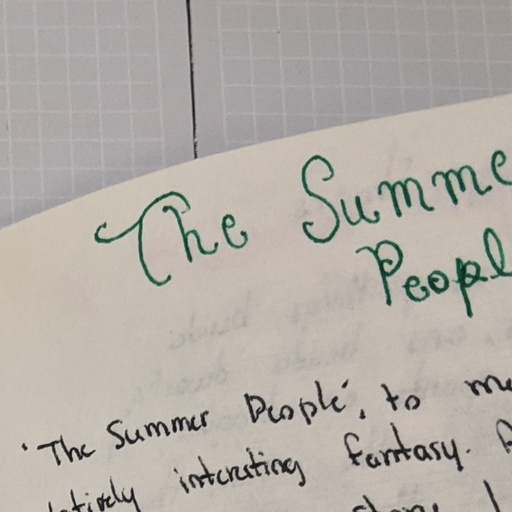 The Summe
Peopl
'The Summer People', to me
latively interesting fantasy.